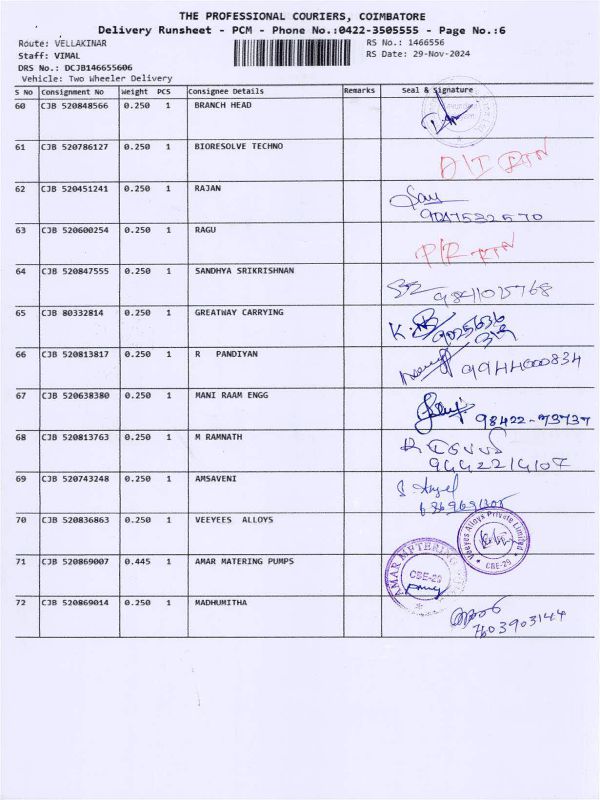 THE PROFESSIONAL COURIERS, COIMBATORE
Delivery Runsheet - PCM - Phone No.:0422-3505555 - Page No.:6
Route: VELLAKINAR RS No.: 1466556
Staff: VIMAL RS Date: 29-Nov-2024
DRS No.: DCJB146655606
Vehicle: Two Wheeler Delivery
S No Consignment No Weight PCS Consignee Details Remarks Seal & Signature
60 CJB 520848566 0.250 1 BRANCH HEAD
61 CJB 520786127 0.250 1 BIORESOLVE TECHNO
62 CJB 520451241 0.250 1 RAJAN
63 CJB 520600254 0.250 1 RAGU
64 CJB 520847555 0.250 1 SANDHYA SRIKRISHNAN
65 CJB 80332814 0.250 1 GREATWAY CARRYING
66 CJB 520813817 0.250 1 R PANDIYAN 9944000834
67 CJB 520638380 0.250 1 MANI RAAM ENGG 98422-73737
68 CJB 520813763 0.250 1 M RAMNATH
9442214107
69 CJB 520743248 0.250 1 AMSAVENI
70 CJB 520836863 0.250 1 VEEYEES ALLOYS
Veeyes Alloys Private Limited
CBE-29
71 CJB 520869007 0.445 1 AMAR MATERING PUMPS
AMAR METERING
CBE-29
72 CJB 520869014 0.250 1 MADHUMITHA
7603903144